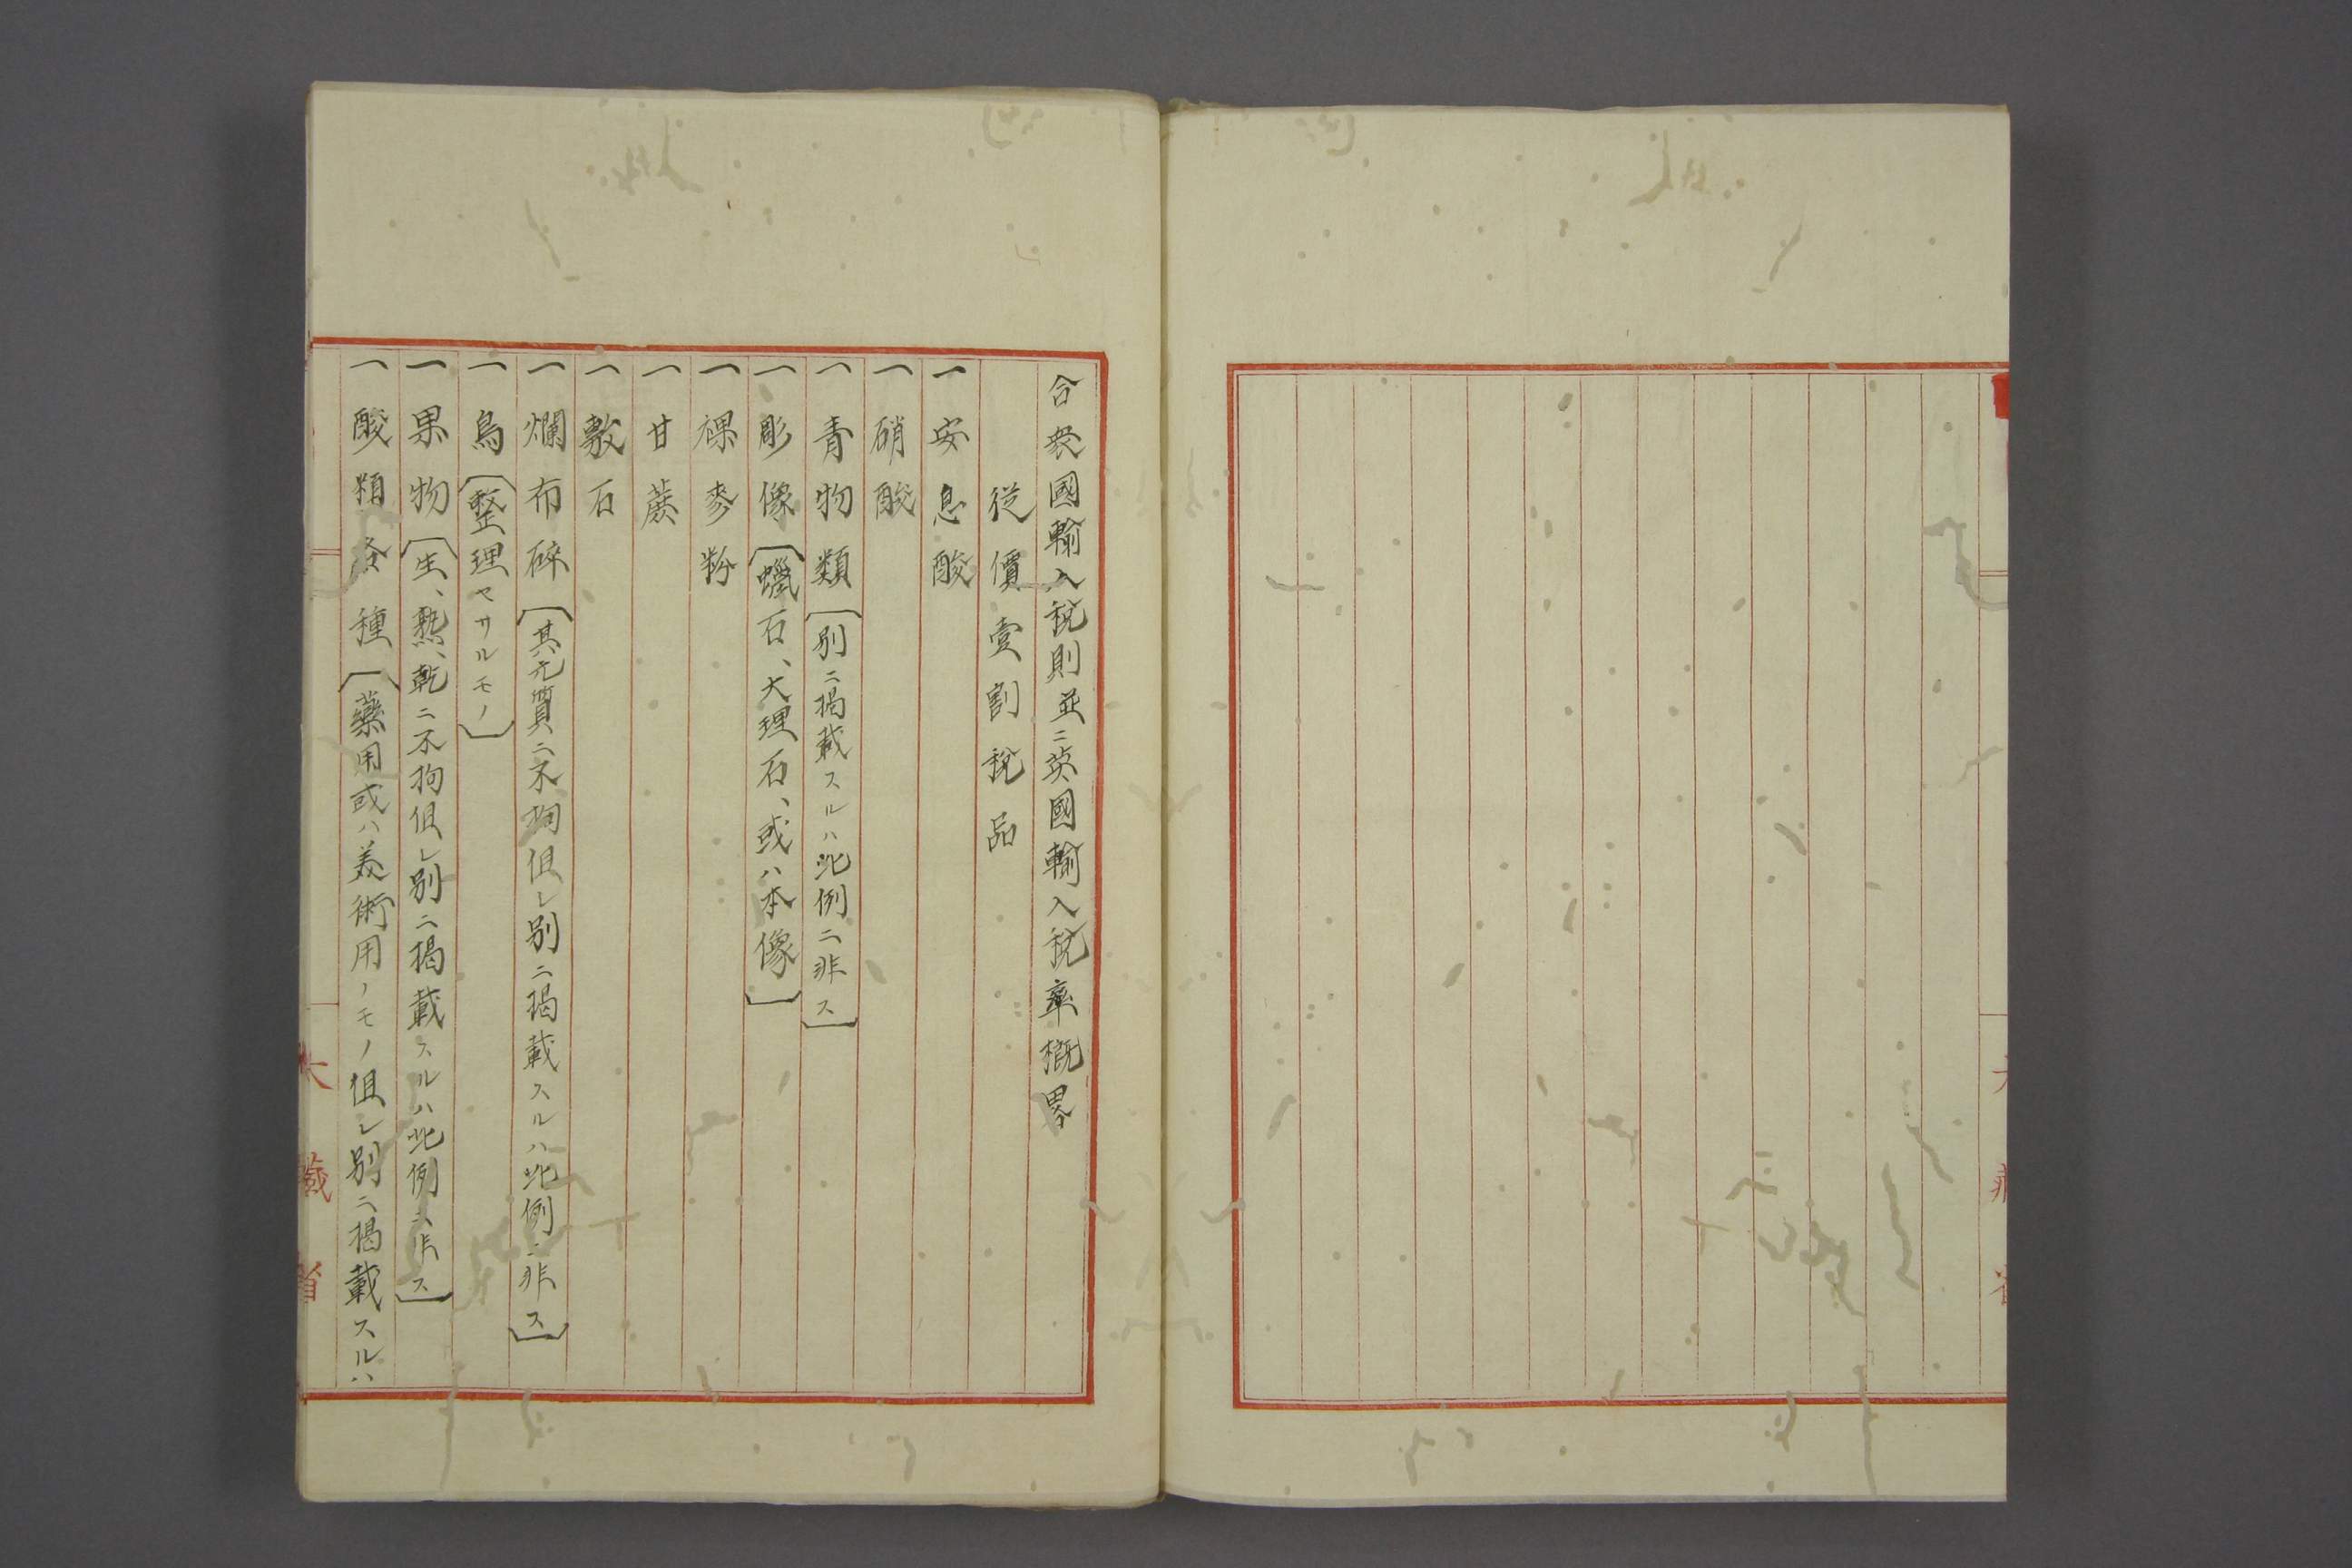 合衆國輸入税則並ニ英國輸入税率概畧
從價壹割税品
一安息酸
一硝酸
一青物類〔別ニ掲載スルハ此例ニ非ス〕
一彫像〔蠟石、大理石、或ハ本像〕
一裸麥粉
一甘蔗
一敷石
一爛布碎〔其元質ニ不拘但シ別ニ掲載スルハ此例ニ非ス〕
一鳥〔整理セサルモノ〕
一果物〔生、熟、乾ニ不拘但シ別ニ掲載スルハ此例ニ非ス〕
一酸類各種〔藥用或ハ美術用ノモノ但シ別ニ掲載スルハ
大藏省